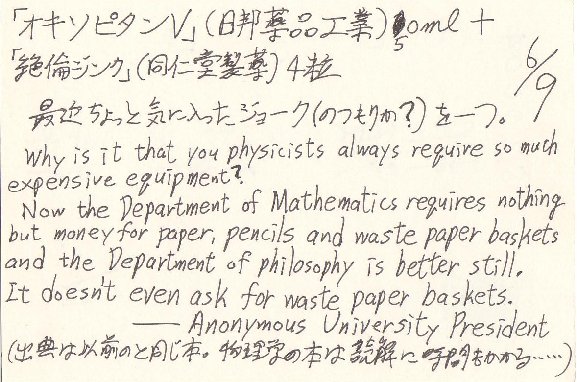 「オキソピタンV」(日邦薬品工業) 50ml +
「絶倫ジンク」(同仁堂製薬) 4粒
6/9
最近ちょっと気に入ったジョーク(のつもりか?)を一つ。
Why is it that you physicists always require so much
expensive equipment?
Now the Department of Mathematics requires nothing
but money for paper, pencils and waste paper baskets
and the Department of philosophy is better still.
It doesn't even ask for waste paper baskets.
—— Anonymous University President
(出典は以前のと同じ本。物理学の本は読解に時間もかかる……)